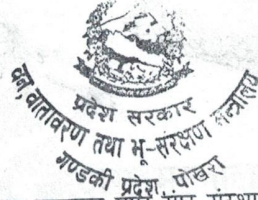 प्रदेश सरकार
वन, वातावरण तथा भू-संरक्षण मन्त्रालय
गण्डकी प्रदेश, पोखरा